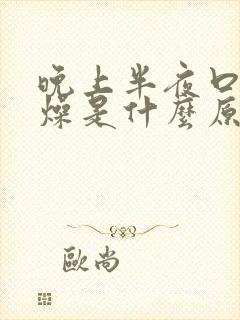 晚上半夜口
燥是什麼原
歐尚